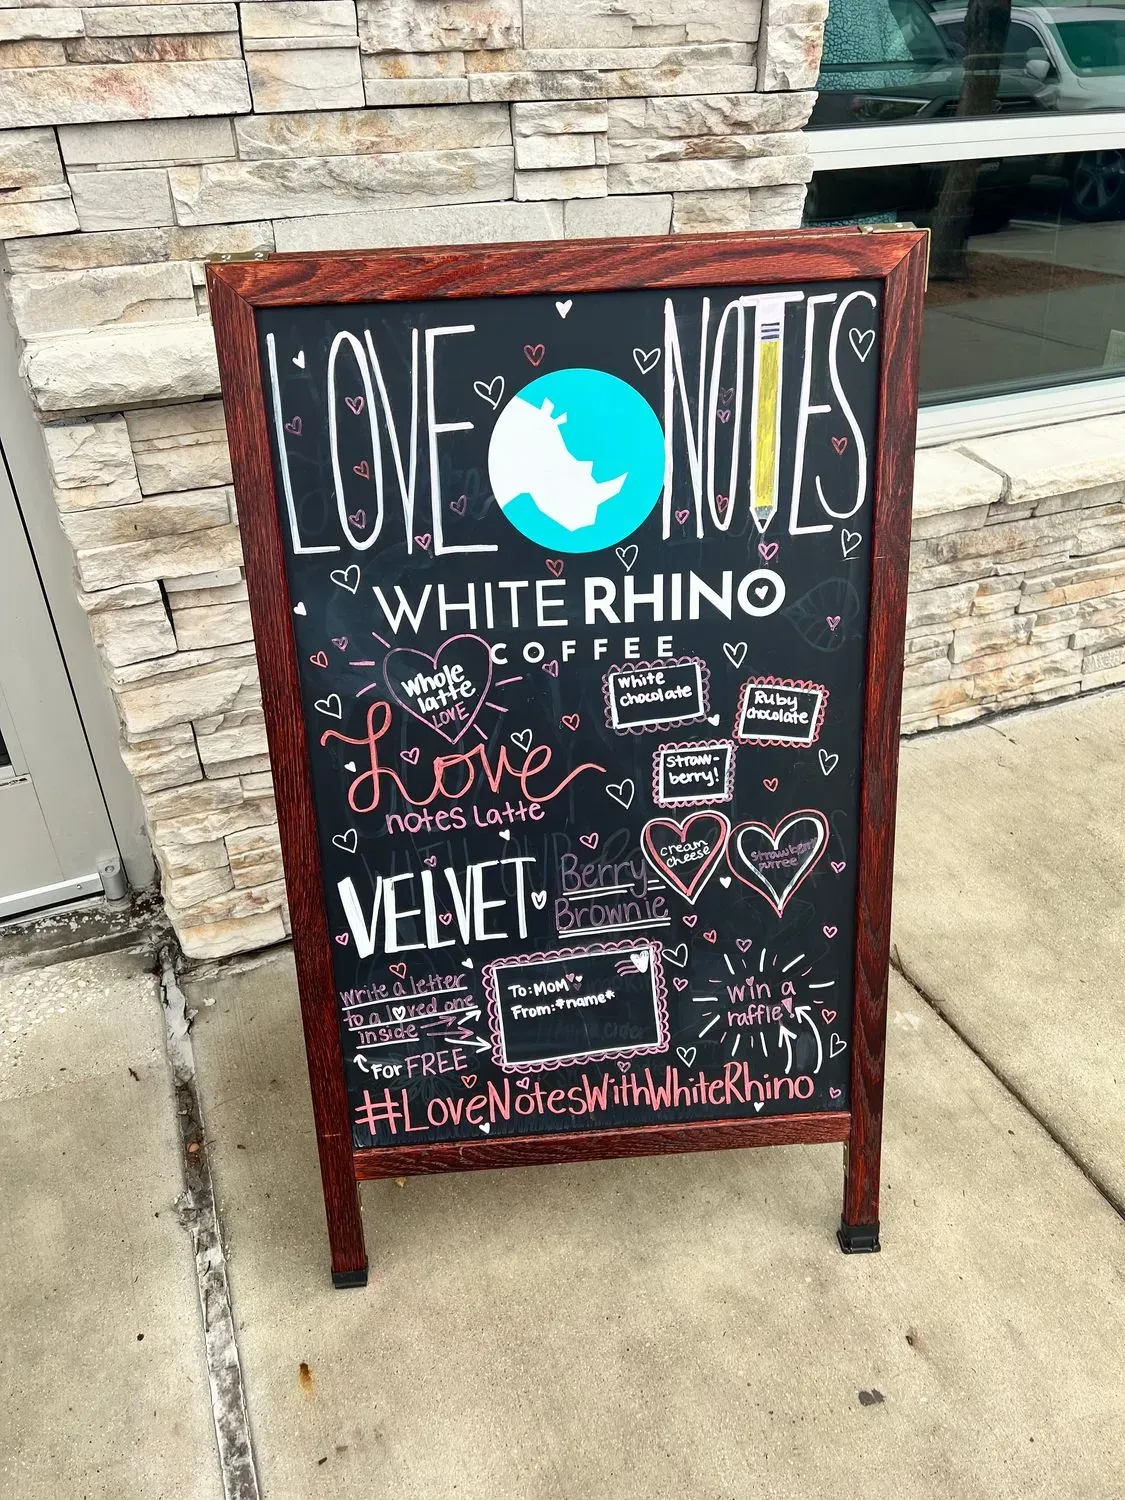 LOVE NOTES
WHITE RHINO
COFFEE
Whole
latte
LOVE
Love
notes Latte
White
chocolate
Ruby
chocolate
Straw-
berry!
VELVET
Berry
Brownie
cream
cheese
strawberry
purree
Write a letter
to a loved one
inside
For FREE
To: MOM
From: *name*
win a
raffle!
#LoveNotesWithWhiteRhino